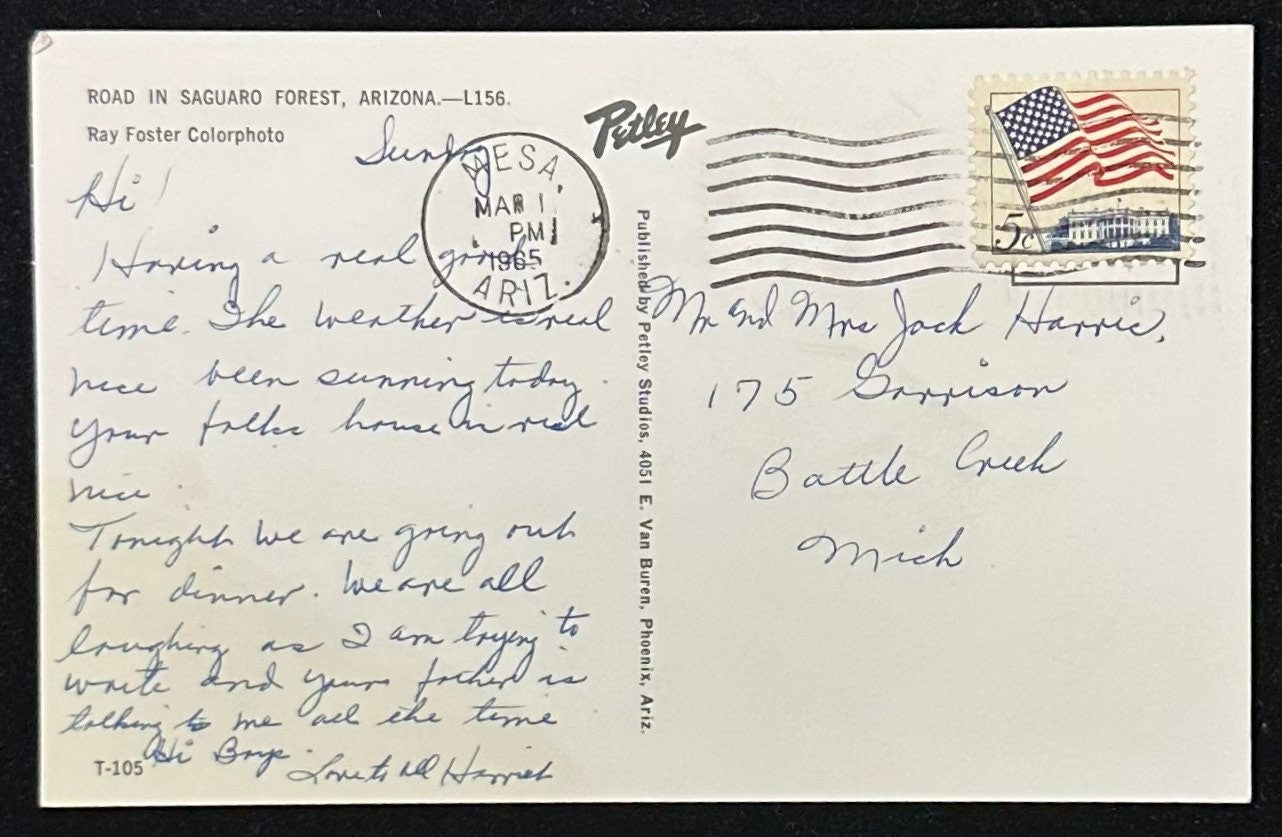 ROAD IN SAGUARO FOREST, ARIZONA.—L156.
Ray Foster Colorphoto
Petley
Sunday
MESA,
MAR 1
PM
1965
ARIZ.
5c
Hi!
Having a real good
time. The weather is real
nice been sunning today.
Your folks house is real
nice.
Tonight we are going out
for dinner. We are all
laughing as I am trying to
write and your father is
talking to me all the time
Hi Boys.
Love to all Harriet
T-105
Published by Petley Studios, 4051 E. Van Buren, Phoenix, Ariz.
Mr and Mrs Jack Harris,
175 Garrison
Battle Creek
Mich